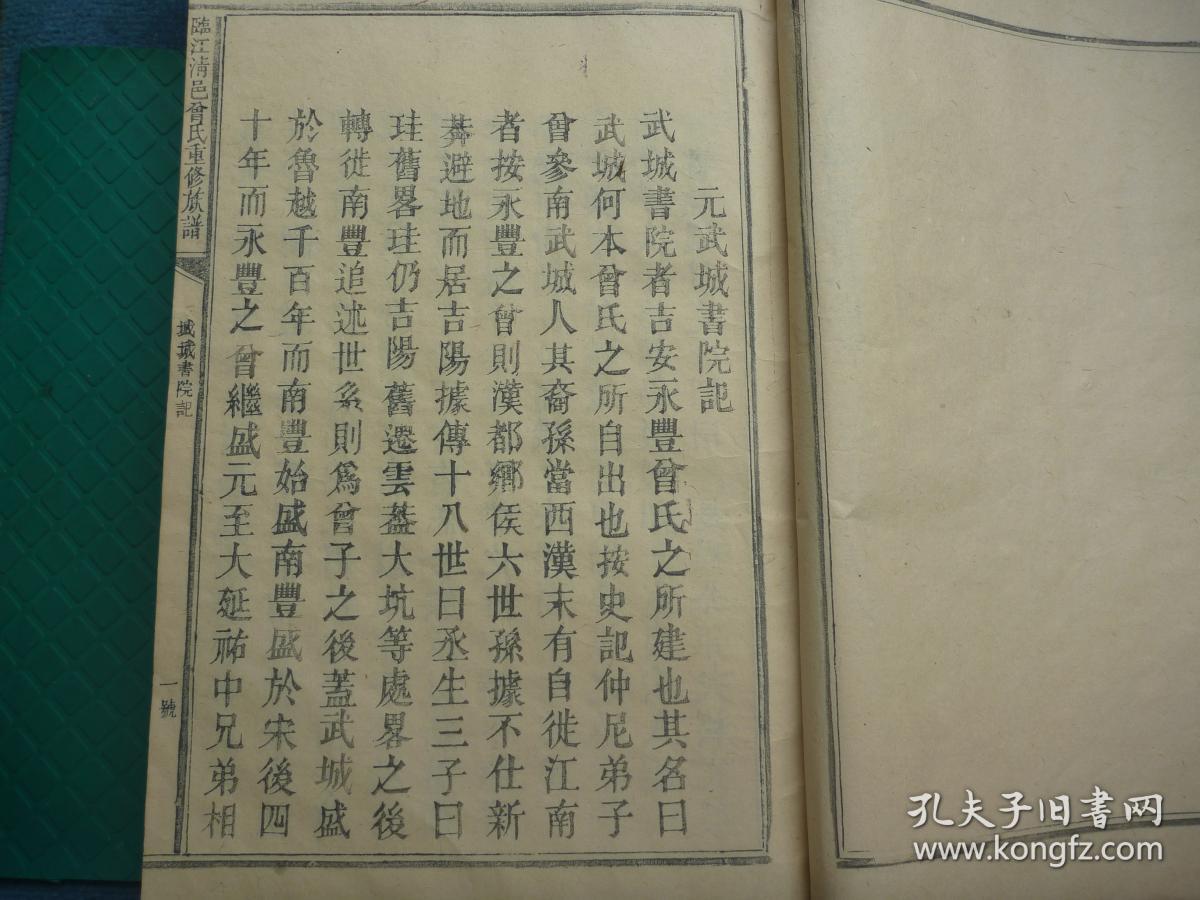 元武城書院記
武城書院者吉安永豐曾氏之所建也其名曰
武城何本曾氏之所自出也按史記仲尼弟子
曾參南武城人其裔孫當西漢末有自徙江南
者按永豐之曾則漢都鄉侯六世孫據不仕新
莽避地而居吉陽據傳十八世曰丞生三子曰
珪舊畧珪仍吉陽舊遷雲蓋大坑等處畧之後
轉徙南豐追述世系則爲曾子之後蓋武城盛
於魯越千百年而南豐始盛南豐盛於宋後四
十年而永豐之曾繼盛元至大延祐中兄弟相
臨江清邑曾氏重修族譜
城書院記
一號
孔夫子旧书网
www.kongfz.com